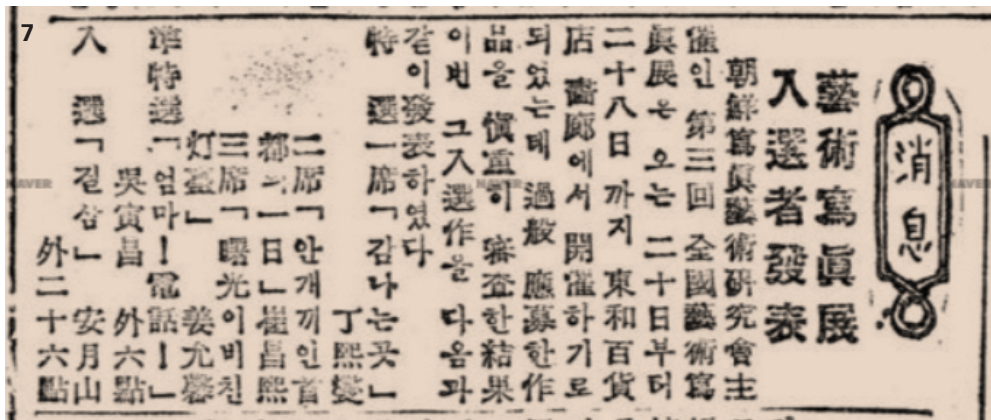 7
消息
藝術寫眞展
入選者發表
朝鮮寫眞藝術硏究會主
催인 第三回 全國藝術寫
眞展은 오는 二十日부터
二十八日 까지 東和百貨
店 畵廊에서 開催하기로
되었는데 過般 應募한作
品을 愼重히 審査한結果
이번 그入選作을 다음과
같이發表하였다
特 選一席「감나는곳」
丁熙燮
二席「안개끼인首
都의一日」崔昌熙
三席「曙光이비친
灯臺」 姜允
準特選「엄마ー電話ー」
吳寅昌 外六點
入 選「길삼」 安月山
外二十六點
NAVER
NAVER
NAVER